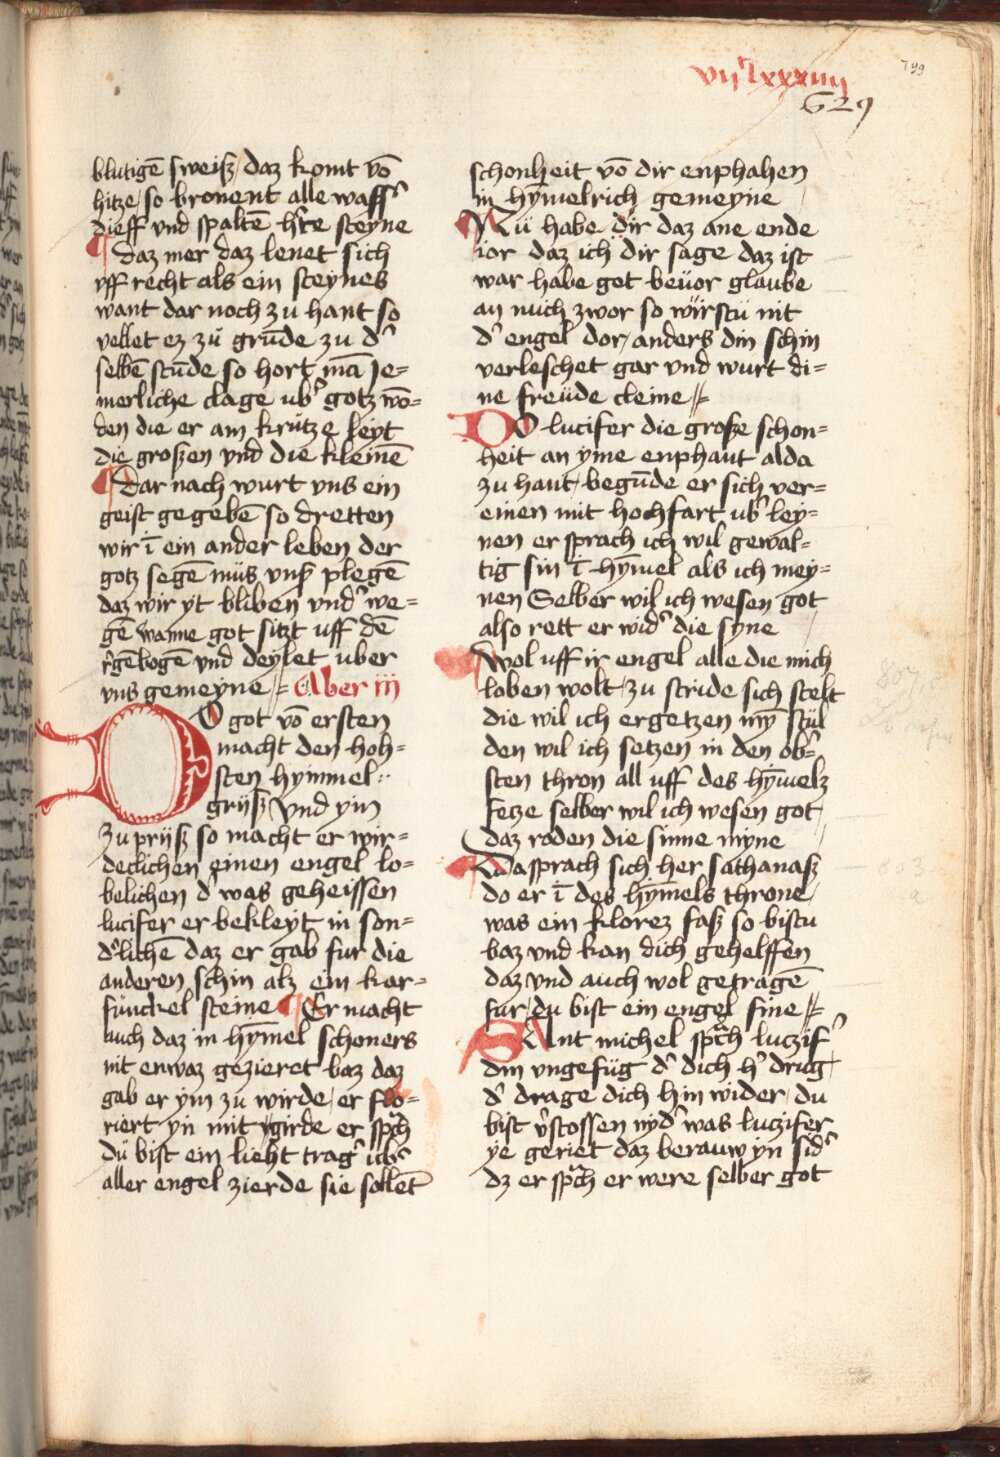 vijᶜlxxxiiij
799
629
blutigē sweiß / daz komt vō
hitze / so bronent alle wasß
dieff vnd spaltē hʳte steyne
¶ daz mer daz lenet sich
vff recht als ein steynes
want dar noch zu hant so
vellet ez zü grūde zu dʾ
selbē stūde so hort mā Je=
merliche clage ubʾ gotz wō=
den die er am krütze leyt
die großen vnd die kleinē
¶ dar nach wurt vns ein
geist gegebē so dretten
wir ī ein ander leben der
gotz segē müs vnß plegē
daz wir yt bliben vndʾ we=
gē wanne got sitzt uff dē
rʾgēbogē vnd deylet uber
vns gemeyne // Aber iij
DO got vō ersten
macht den hoh=
sten hymmel
grijß vnd ym
zu prijß so macht er wir=
declichen einen engel lo=
belichen dʾ was geheissen
lucifer er bekleyt in son=
dʾlichē daz er gab fur die
anderen schin alz ein kar=
fünckel steine ¶ Er macht
auch daz in hȳmel schoners
nit enwaz gezieret baz daz
gab er ym zu wirde / er flo=
riert yn mit girde er spch
du bist ein lieht tragʾ ubʾ
aller engel zierde sie sollēt
schonheit vō dir enphahen
in hȳmelrich gemeyne
Nü habe dir daz ane ende
ior daz ich dir sage daz ist
war habe got beuor glaube
an mich zwor so würstu nit
dʾ engel dor / anders din schin
verleschet gar vnd wurt di=
ne freüde cleine //
DO lucifer die große schon=
heit an yme enphant alda
zu hant / begūde er sich ver=
einen mit hochfart ubʾ ley=
nen er sprach ich wil gewal=
tig sin ī hȳmel als ich mey=
nen Selber wil ich wesen got
also rett er widʾ die syne
Wol uff ir engel alle die mich
loben wolt / zu stride sich stelt
die wil ich ergetzen mȳ stül
den wil ich setzen in den obʾ=
sten thron all uff des hȳmelz
feze selber wil ich wesen got /
daz raden die sinne myne
Da sprach sich her sathanaß
do er ī des hȳmels throne /
was ein klorez faß so bistu
baz vnd kan dich gehelffen
daz vnd auch wol getragē
fur / du bist ein engel fine //
SAnt michel spch luczifʾ
din vngefüg dʾ dich hʾ drug /
dʾ drage dich hin wider / du
bist vʾstossen nydʾ was luczifer
ye geriet daz berauw yn sidʾ
dz er spch er were selber got